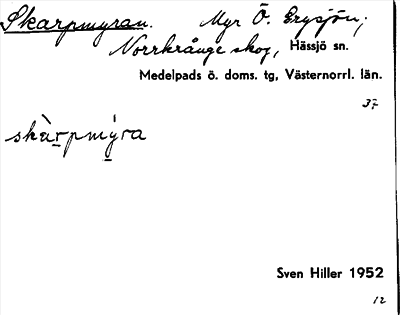 Skarpmyran. Myr Ö. Erysjön,
Norrkrånge skog, Hässjö sn.
Medelpads ö. doms. tg, Västernorrl. län.
37
skàrpmýra
Sven Hiller 1952
12